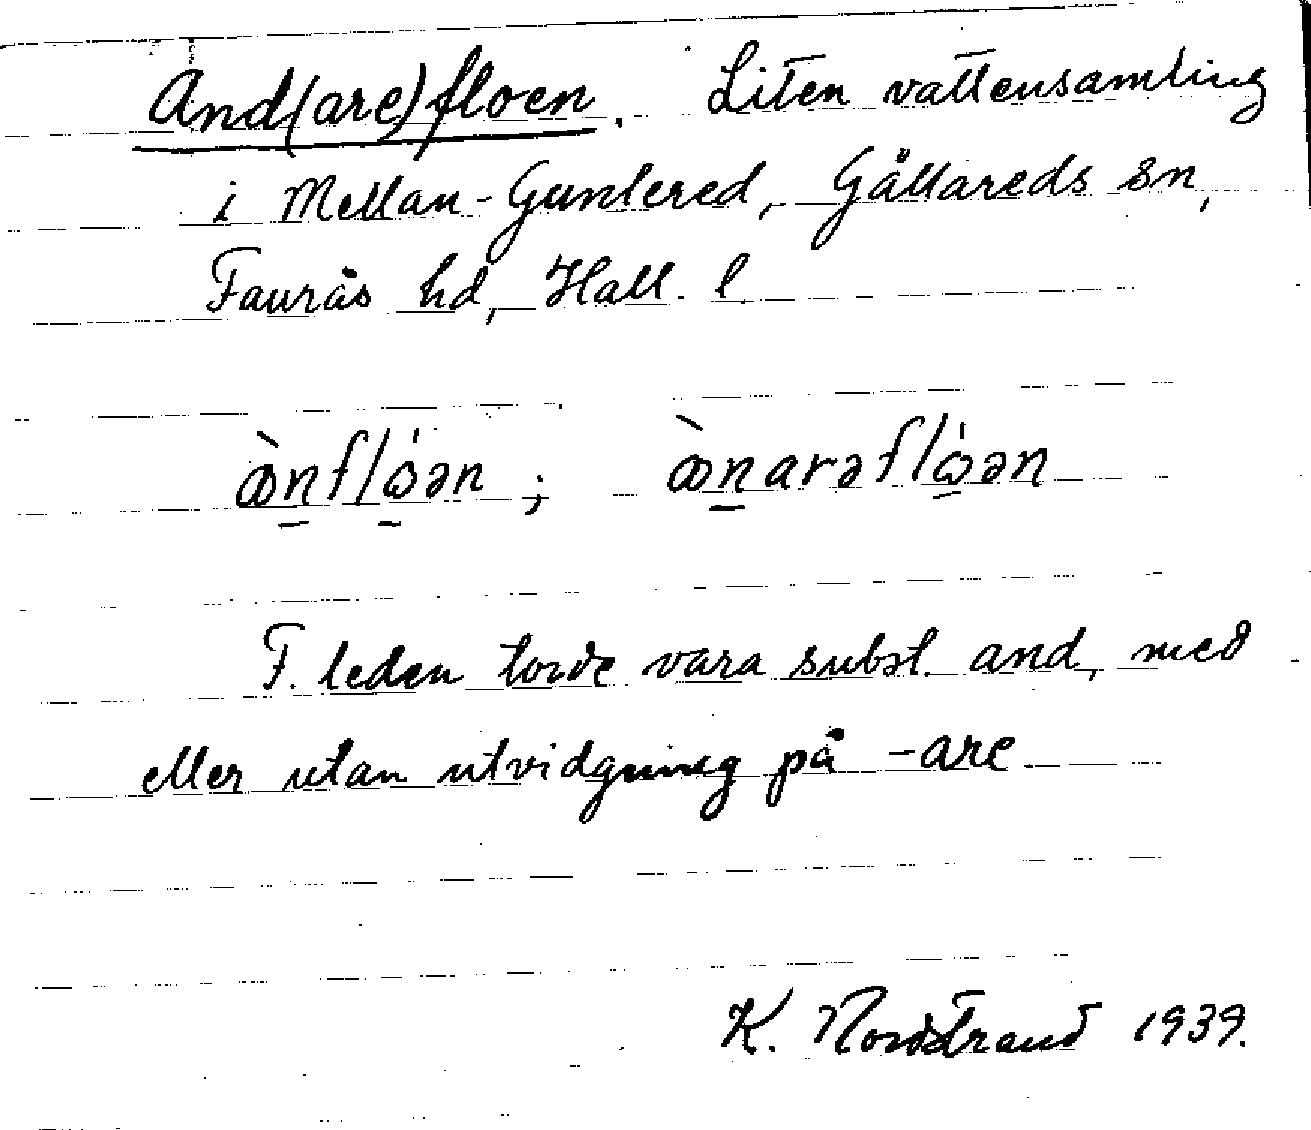 And(are)floen. Liten vattensamling
i Mellan-Gunlered, Gällareds sn,
Faurås hd, Hall. l.
æ̀nfló̱ən ; æ̀ṉarəfló̱ən
F. leden torde vara subst. and, med
eller utan utvidgning på -are
K. Nordstrand 1939.